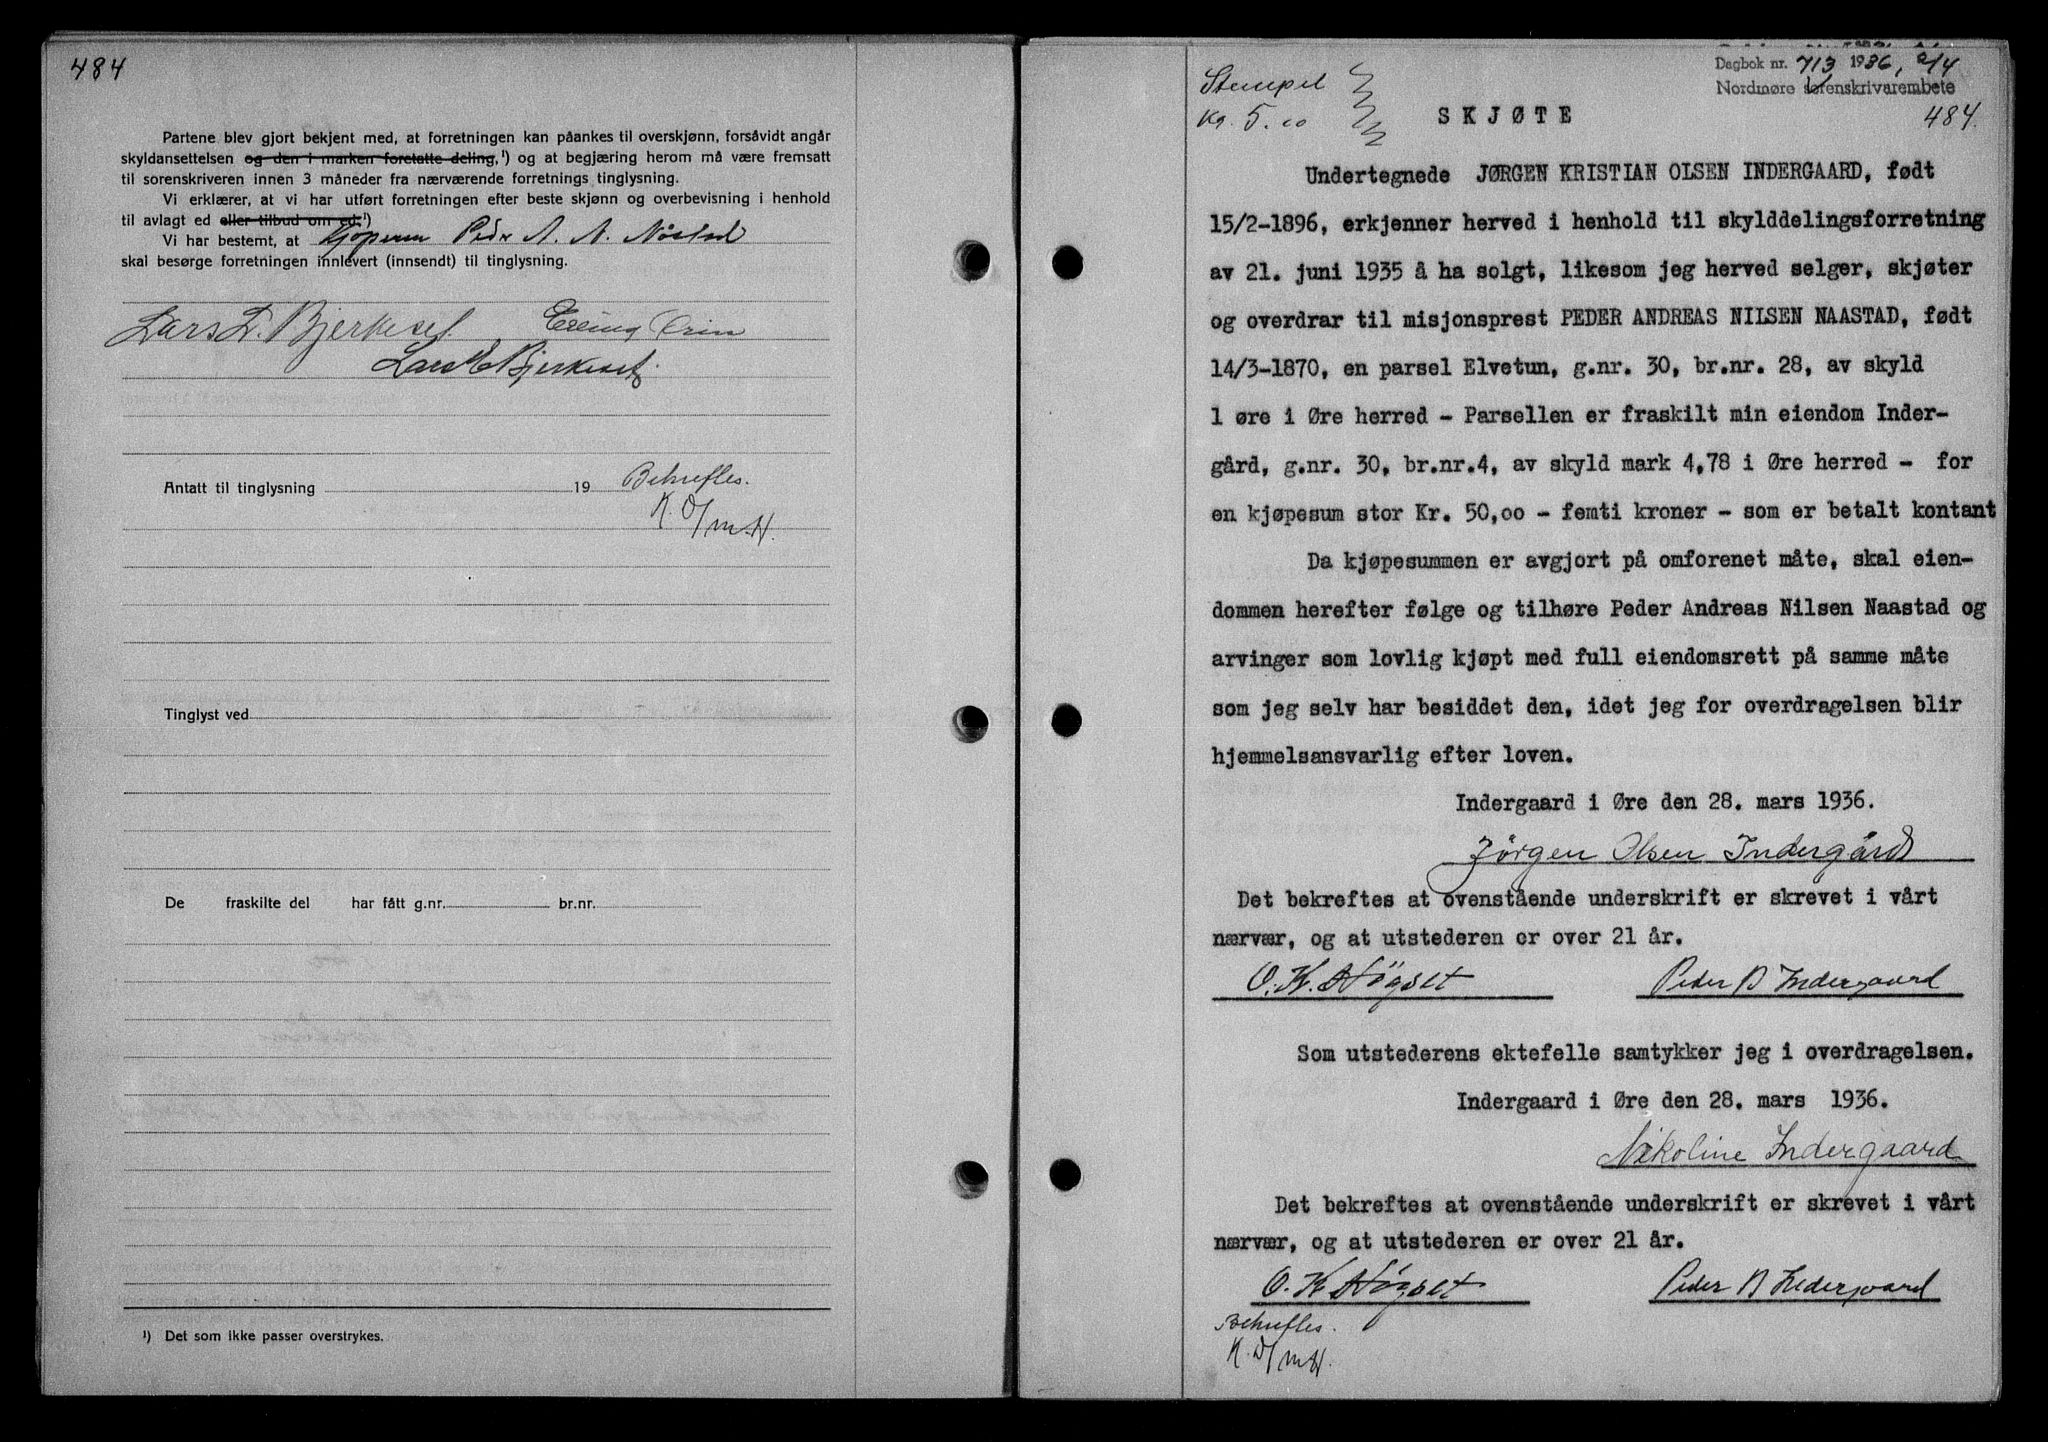 484
Partene blev gjort bekjent med, at forretningen kan påankes til overskjønn, forsåvidt angår
skyldansettelsen og den i marken foretatte deling,¹) og at begjæring herom må være fremsatt
til sorenskriveren innen 3 måneder fra nærværende forretnings tinglysning.
Vi erklærer, at vi har utført forretningen efter beste skjønn og overbevisning i henhold
til avlagt ed eller tilbud om ed.¹)
Vi har bestemt, at kjøperen Peder A. N. Nåstad
skal besørge forretningen innlevert (innsendt) til tinglysning.
Lars L. Bjerkeset. Erling Ørin
Lars E Bjerkeset.
Antatt til tinglysning 19
Bekreftes.
K. D/m.H.
Tinglyst ved
De fraskilte del har fått g.nr. br.nr.
¹) Det som ikke passer overstrykes.
Stempel
Kr. 5.00
Dagbok nr. 713 1936, 2/4
Nordmøre sorenskrivarembete
484.
SKJØTE
Undertegnede JØRGEN KRISTIAN OLSEN INDERGAARD, født
15/2-1896, erkjenner herved i henhold til skylddelingsforretning
av 21. juni 1935 å ha solgt, likesom jeg herved selger, skjøter
og overdrar til misjonsprest PEDER ANDREAS NILSEN NAASTAD, født
14/3-1870, en parsel Elvetun, g.nr. 30, br.nr. 28, av skyld
1 øre i Øre herred - Parsellen er fraskilt min eiendom Inder-
gård, g.nr. 30, br.nr.4, av skyld mark 4,78 i Øre herred - for
en kjøpesum stor Kr. 50,oo - femti kroner - som er betalt kontant
Da kjøpesummen er avgjort på omforenet måte, skal eien-
dommen herefter følge og tilhøre Peder Andreas Nilsen Naastad og
arvinger som lovlig kjøpt med full eiendomsrett på samme måte
som jeg selv har besiddet den, idet jeg for overdragelsen blir
hjemmelsansvarlig efter loven.
Indergaard i Øre den 28. mars 1936.
Jörgen Olsen Indergård
Det bekreftes at ovenstående underskrift er skrevet i vårt
nærvær, og at utstederen er over 21 år.
O. K. Högset Peder B Indergaard
Som utstederens ektefelle samtykker jeg i overdragelsen.
Indergaard i Øre den 28. mars 1936.
Nikoline Indergaard
Det bekreftes at ovenstående underskrift er skrevet i vårt
nærvær, og at utstederen er over 21 år.
O. K Högset Peder B Indergaard
Bekreftes.
K. D/m H.